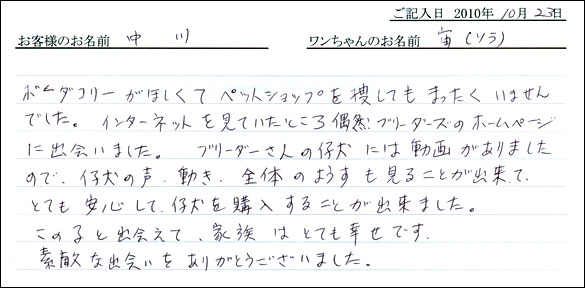 ご記入日 2010年 10月 23日
お客様のお名前 中川 ワンちゃんのお名前 宙(ソラ)
ボーダコリーがほしくてペットショップを捜してもまったくいません
でした。インターネットを見ていたところ偶然ブリーダーズのホームページ
に出会いました。ブリーダーさんの仔犬には動画がありました
ので、仔犬の声、動き、全体のようすも見ることが出来て、
とても安心して、仔犬を購入することが出来ました。
この子と出会えて、家族はとても幸せです。
素敵な出会いをありがとうございました。